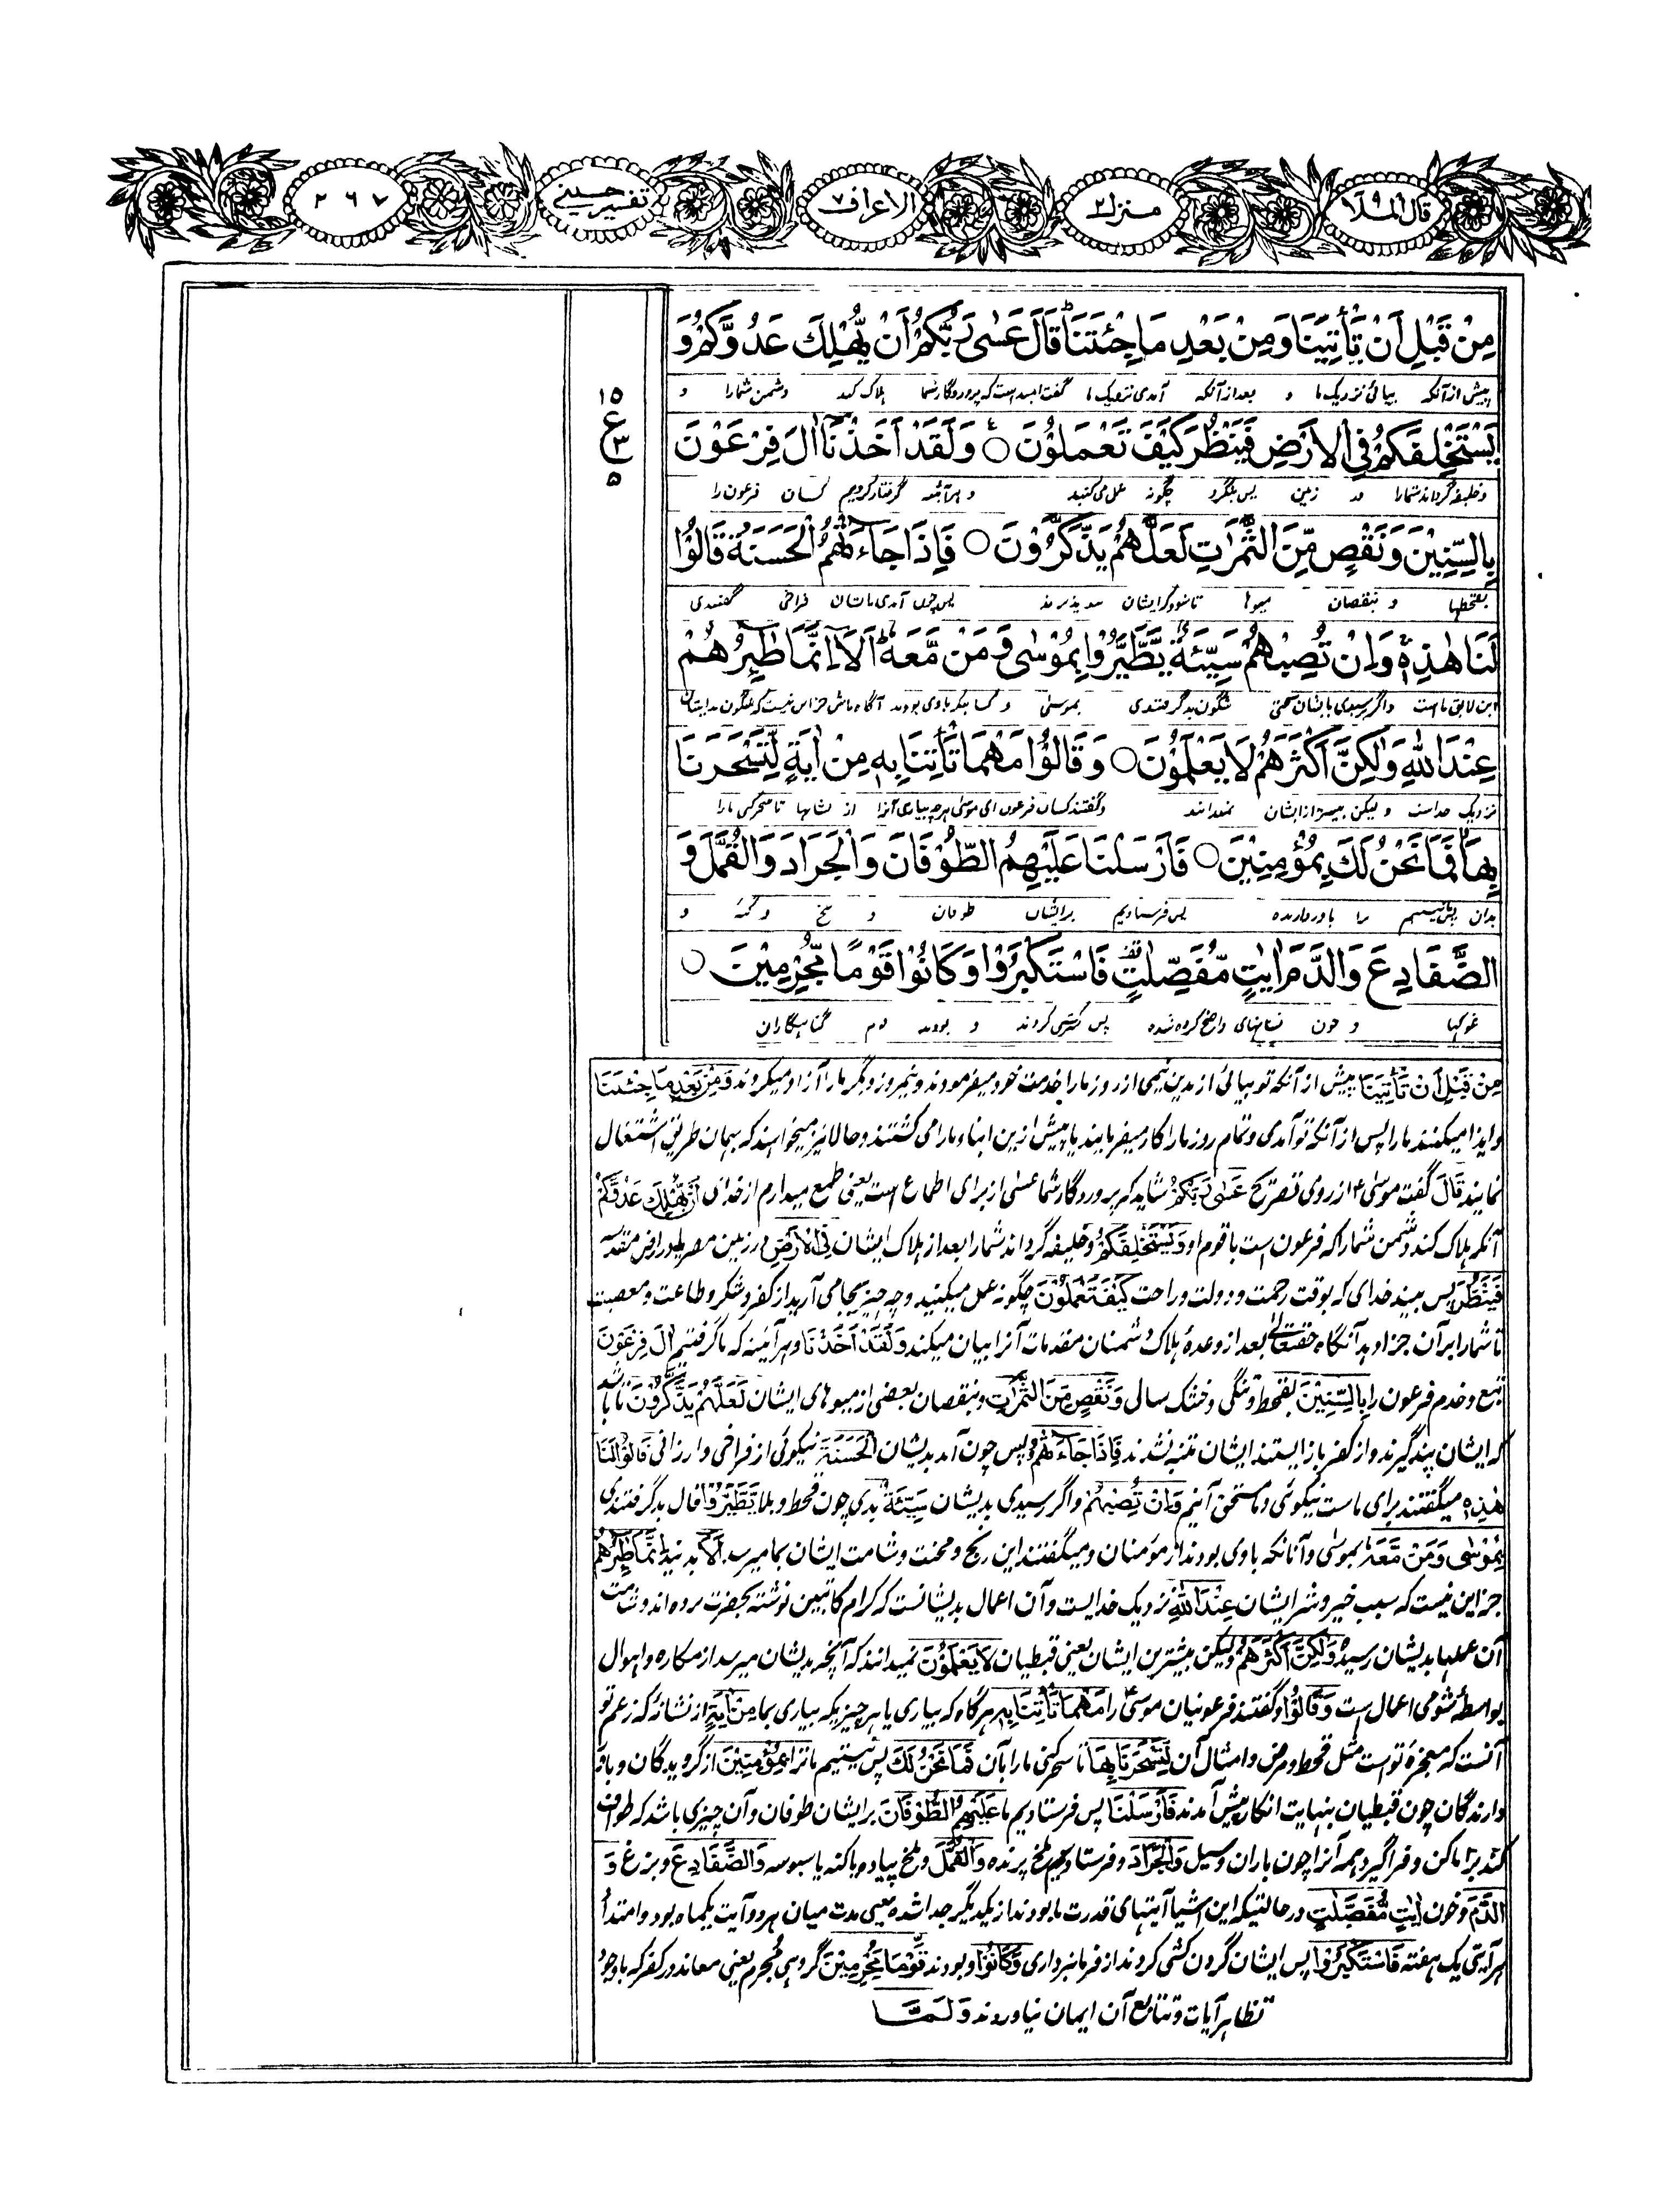 قال الملا ٩
منزل ٢
الاعراف ٧
تفسیر حسینی
٢٦٧
مِنْ قَبْلِ اَنْ تَأْتِيَنَا وَمِنْ بَعْدِ مَا جِئْتَنَا ؕ قَالَ عَسٰی رَبُّكُمْ اَنْ يُّهْلِكَ عَدُوَّكُمْ وَ
پیش از آنکه بیائی نزدیک ما و بعد از آنکه آمدی نزدیک ما گفت امید است که پروردگار شما هلاک کند دشمن شمارا و
يَسْتَخْلِفَكُمْ فِي الْاَرْضِ فَيَنْظُرَ كَيْفَ تَعْمَلُوْنَ ۝ وَلَقَدْ اَخَذْنَاۤ اٰلَ فِرْعَوْنَ
١٥
ع
٣
٥
و خلیفه گرداند شمارا در زمین پس بنگرد چگونه عمل می کنید و هر آئنه گرفتار کردیم کسان فرعون را
بِالسِّنِيْنَ وَنَقْصٍ مِّنَ الثَّمَرٰتِ لَعَلَّهُمْ يَذَّكَّرُوْنَ ۝ فَاِذَا جَآءَتْهُمُ الْحَسَنَةُ قَالُوْا
بقحطها و بنقصان میوها تا شود که ایشان پند پذیرند پس چون آمدی باشان فراخی گفتندی
لَنَا هٰذِهٖ ۚ وَاِنْ تُصِبْهُمْ سَيِّئَةٌ يَّطَّيَّرُوْا بِمُوْسٰى وَمَنْ مَّعَهٗ ؕ اَلَاۤ اِنَّمَا طٰٓئِرُهُمْ
این لایق ماست و اگر برسیدی بایشان سختی شگون بد گرفتندی بموسیٰ و کسانیکه با وی بودند آگاه باش جز این نیست که شگون بد ایشان
عِنْدَ اللّٰهِ وَلٰكِنَّ اَكْثَرَهُمْ لَا يَعْلَمُوْنَ ۝ وَقَالُوْا مَهْمَا تَأْتِنَا بِهٖ مِنْ اٰيَةٍ لِّتَسْحَرَنَا
نزدیک خداست و لیکن بیشتر از ایشان نمیدانند و گفتند کسان فرعون ای موسیٰ هر چه بیاری آنرا از نشانها تا سحر کنی مارا
بِهَا ۙ فَمَا نَحْنُ لَكَ بِمُؤْمِنِيْنَ ۝ فَاَرْسَلْنَا عَلَيْهِمُ الطُّوْفَانَ وَالْجَرَادَ وَالْقُمَّلَ وَ
بدان پس نیستیم ترا باور دارنده پس فرستادیم بر ایشان طوفان و ملخ و کنه و
الضَّفَادِعَ وَالدَّمَ اٰيٰتٍ مُّفَصَّلٰتٍ قف فَاسْتَكْبَرُوْا وَكَانُوْا قَوْمًا مُّجْرِمِيْنَ ۝
غوکها و خون نشانهای واضح کرده شده پس سرکشی کردند و بودند قوم گناهگاران
مِنْ قَبْلِ اَنْ تَأْتِيَنَا پیش از آنکه تو بیائی از مدین نیمی از روز مارا خدمت خود میفرمودند و نیمروز دیگر مارا آزاد میکردند وَمِنْ بَعْدِ مَا جِئْتَنَا
و ایذا میکنند مارا پس از آنکه تو آمدی و تمام روز مارا کار میفرمایند یا پیش ازین ابناء مارا می کشتند و حالا نیز میخواهند که بهمان طریق اشتغال
نمایند قَالَ گفت موسیٰ ع از روی تصریح عَسٰى رَبُّكُمْ شاید که پروردگار شما عسیٰ از برای اطماع است یعنی طمع میدارم از خدای اَنْ يُّهْلِكَ عَدُوَّكُمْ
آنکه هلاک کند دشمن شمارا که فرعون است با قوم او وَيَسْتَخْلِفَكُمْ و خلیفه گرداند شمارا بعد از هلاک ایشان فِي الْاَرْضِ در زمین مصر یا در ارض مقدسه
فَيَنْظُرَ پس بیند خدای که بوقت رحمت و دولت و راحت كَيْفَ تَعْمَلُوْنَ چگونه عمل میکنید و چه چیز بجا می آرید از کفر و شکر و طاعت و معصیت
تا شمارا بر آن جزا دهد آنگاه حقتعالیٰ بعد از وعدهٔ هلاک دشمنان مقدمات آنرا بیان میکند وَلَقَدْ اَخَذْنَا و هر آئینه که ما گرفتیم اٰلَ فِرْعَوْنَ
تبع و خدم فرعون را بِالسِّنِيْنَ بقحط و تنگی و خشک سالی وَنَقْصٍ مِّنَ الثَّمَرٰتِ و بنقصان بعضی از میوهای ایشان لَعَلَّهُمْ يَذَّكَّرُوْنَ تا باشد
که ایشان پند گیرند و از کفر باز ایستند ایشان متنبه نشدند فَاِذَا جَآءَتْهُمُ پس چون آمد بدیشان الْحَسَنَةُ نیکوئی از فراخی و ارزانی قَالُوْا لَنَا
هٰذِهٖ میگفتند برای ماست نیکوئی و ما مستحق آنیم وَاِنْ تُصِبْهُمْ و اگر رسیدی بدیشان سَيِّئَةٌ بدی چون قحط و بلا يَّطَّيَّرُوْا فال بد گرفتندی
بِمُوْسٰى وَمَنْ مَّعَهٗ بموسیٰ و آنانکه با وی بودند از مؤمنان و میگفتند این رنج و محنت و شامت ایشان بما میرسد اَلَا بدانید اِنَّمَا طٰٓئِرُهُمْ
جز این نیست که سبب خیر و شر ایشان عِنْدَ اللّٰهِ نزدیک خدایست و آن اعمال بدیشانست که کرام کاتبین نوشته بحضرت برده اند و شامت
آن عملها بدیشان رسیده وَلٰكِنَّ اَكْثَرَهُمْ و لیکن بیشترین ایشان یعنی قبطیان لَا يَعْلَمُوْنَ نمیدانند که آنچه بدیشان میرسد از مکاره و اهوال
بواسطهٔ شومی اعمال است وَقَالُوْا و گفتند فرعونیان موسیٰ را مَهْمَا تَأْتِنَا بِهٖ هرگاه که بیاری یا هر چیزیکه بیاری بما مِنْ اٰيَةٍ از نشانهٔ که زعم تو
آنست که معجزهٔ تو است مثل قحط و مرض و امثال آن لِّتَسْحَرَنَا بِهَا تا سحر کنی مارا بآن فَمَا نَحْنُ لَكَ پس نیستیم ما ترا بِمُؤْمِنِيْنَ از گرویدگان و باور
دارندگان چون قبطیان بنهایت انکار پیش آمدند فَاَرْسَلْنَا پس فرستادیم ما عَلَيْهِمُ الطُّوْفَانَ بر ایشان طوفان و آن چیزی باشد که طواف
کند بر اماکن و فرا گیرد همه آنرا چون باران و سیل وَالْجَرَادَ و فرستادیم ملخ پرنده وَالْقُمَّلَ و ملخ پیاده یا کنه یا سبوسه وَالضَّفَادِعَ و بزغ وَ
الدَّمَ و خون اٰيٰتٍ مُّفَصَّلٰتٍ در حالتیکه این اشیا آیتهای قدرت ما بودند از یکدیگر جدا شده یعنی مدت میان هر دو آیت یکماه بود و امتداد
هر آیتی یک هفته فَاسْتَكْبَرُوْا پس ایشان گردن کشی کردند از فرمانبرداری وَكَانُوْا و بودند قَوْمًا مُّجْرِمِيْنَ گروهی مجرم یعنی معاند در کفر که باوجود
تظاهر آیات و تتابع آن ایمان نیاوردند وَلَمَّا